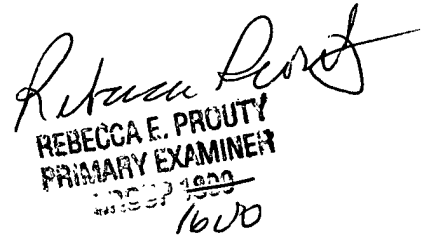 Rebecca Prouty
REBECCA E. PROUTY
PRIMARY EXAMINER
GROUP 1800
1600